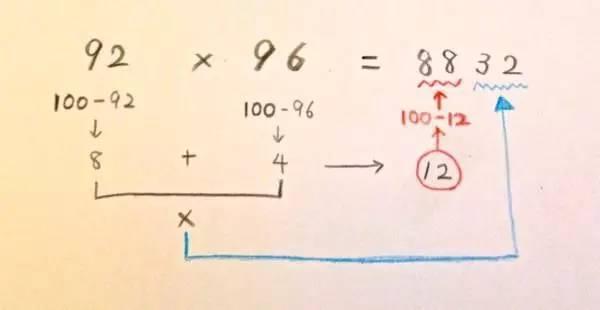 92 × 96 = 8832
100-92 100-96 100-12
8 + 4 → 12
×